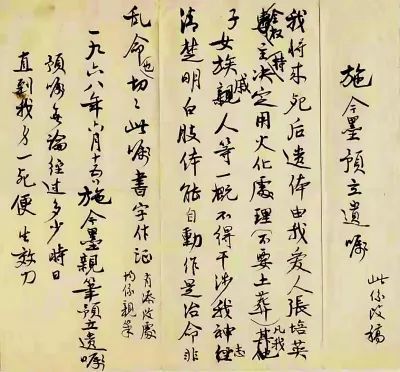 施今墨預立遺嘱
此係改稿
我将来死后遗体由我爱人張培英
全权主持决定用火化處理（不要土葬）其他凡我
子女族戚親人等一概不得干涉我神志
清楚明白肢体能自動作是治命非
乱命也切々此嘱書字作证
有添改處
均係親筆
一九六八年月十五施今墨親筆預立遗嘱
預嘱無論經过多少時日
直到我身一死便生效力